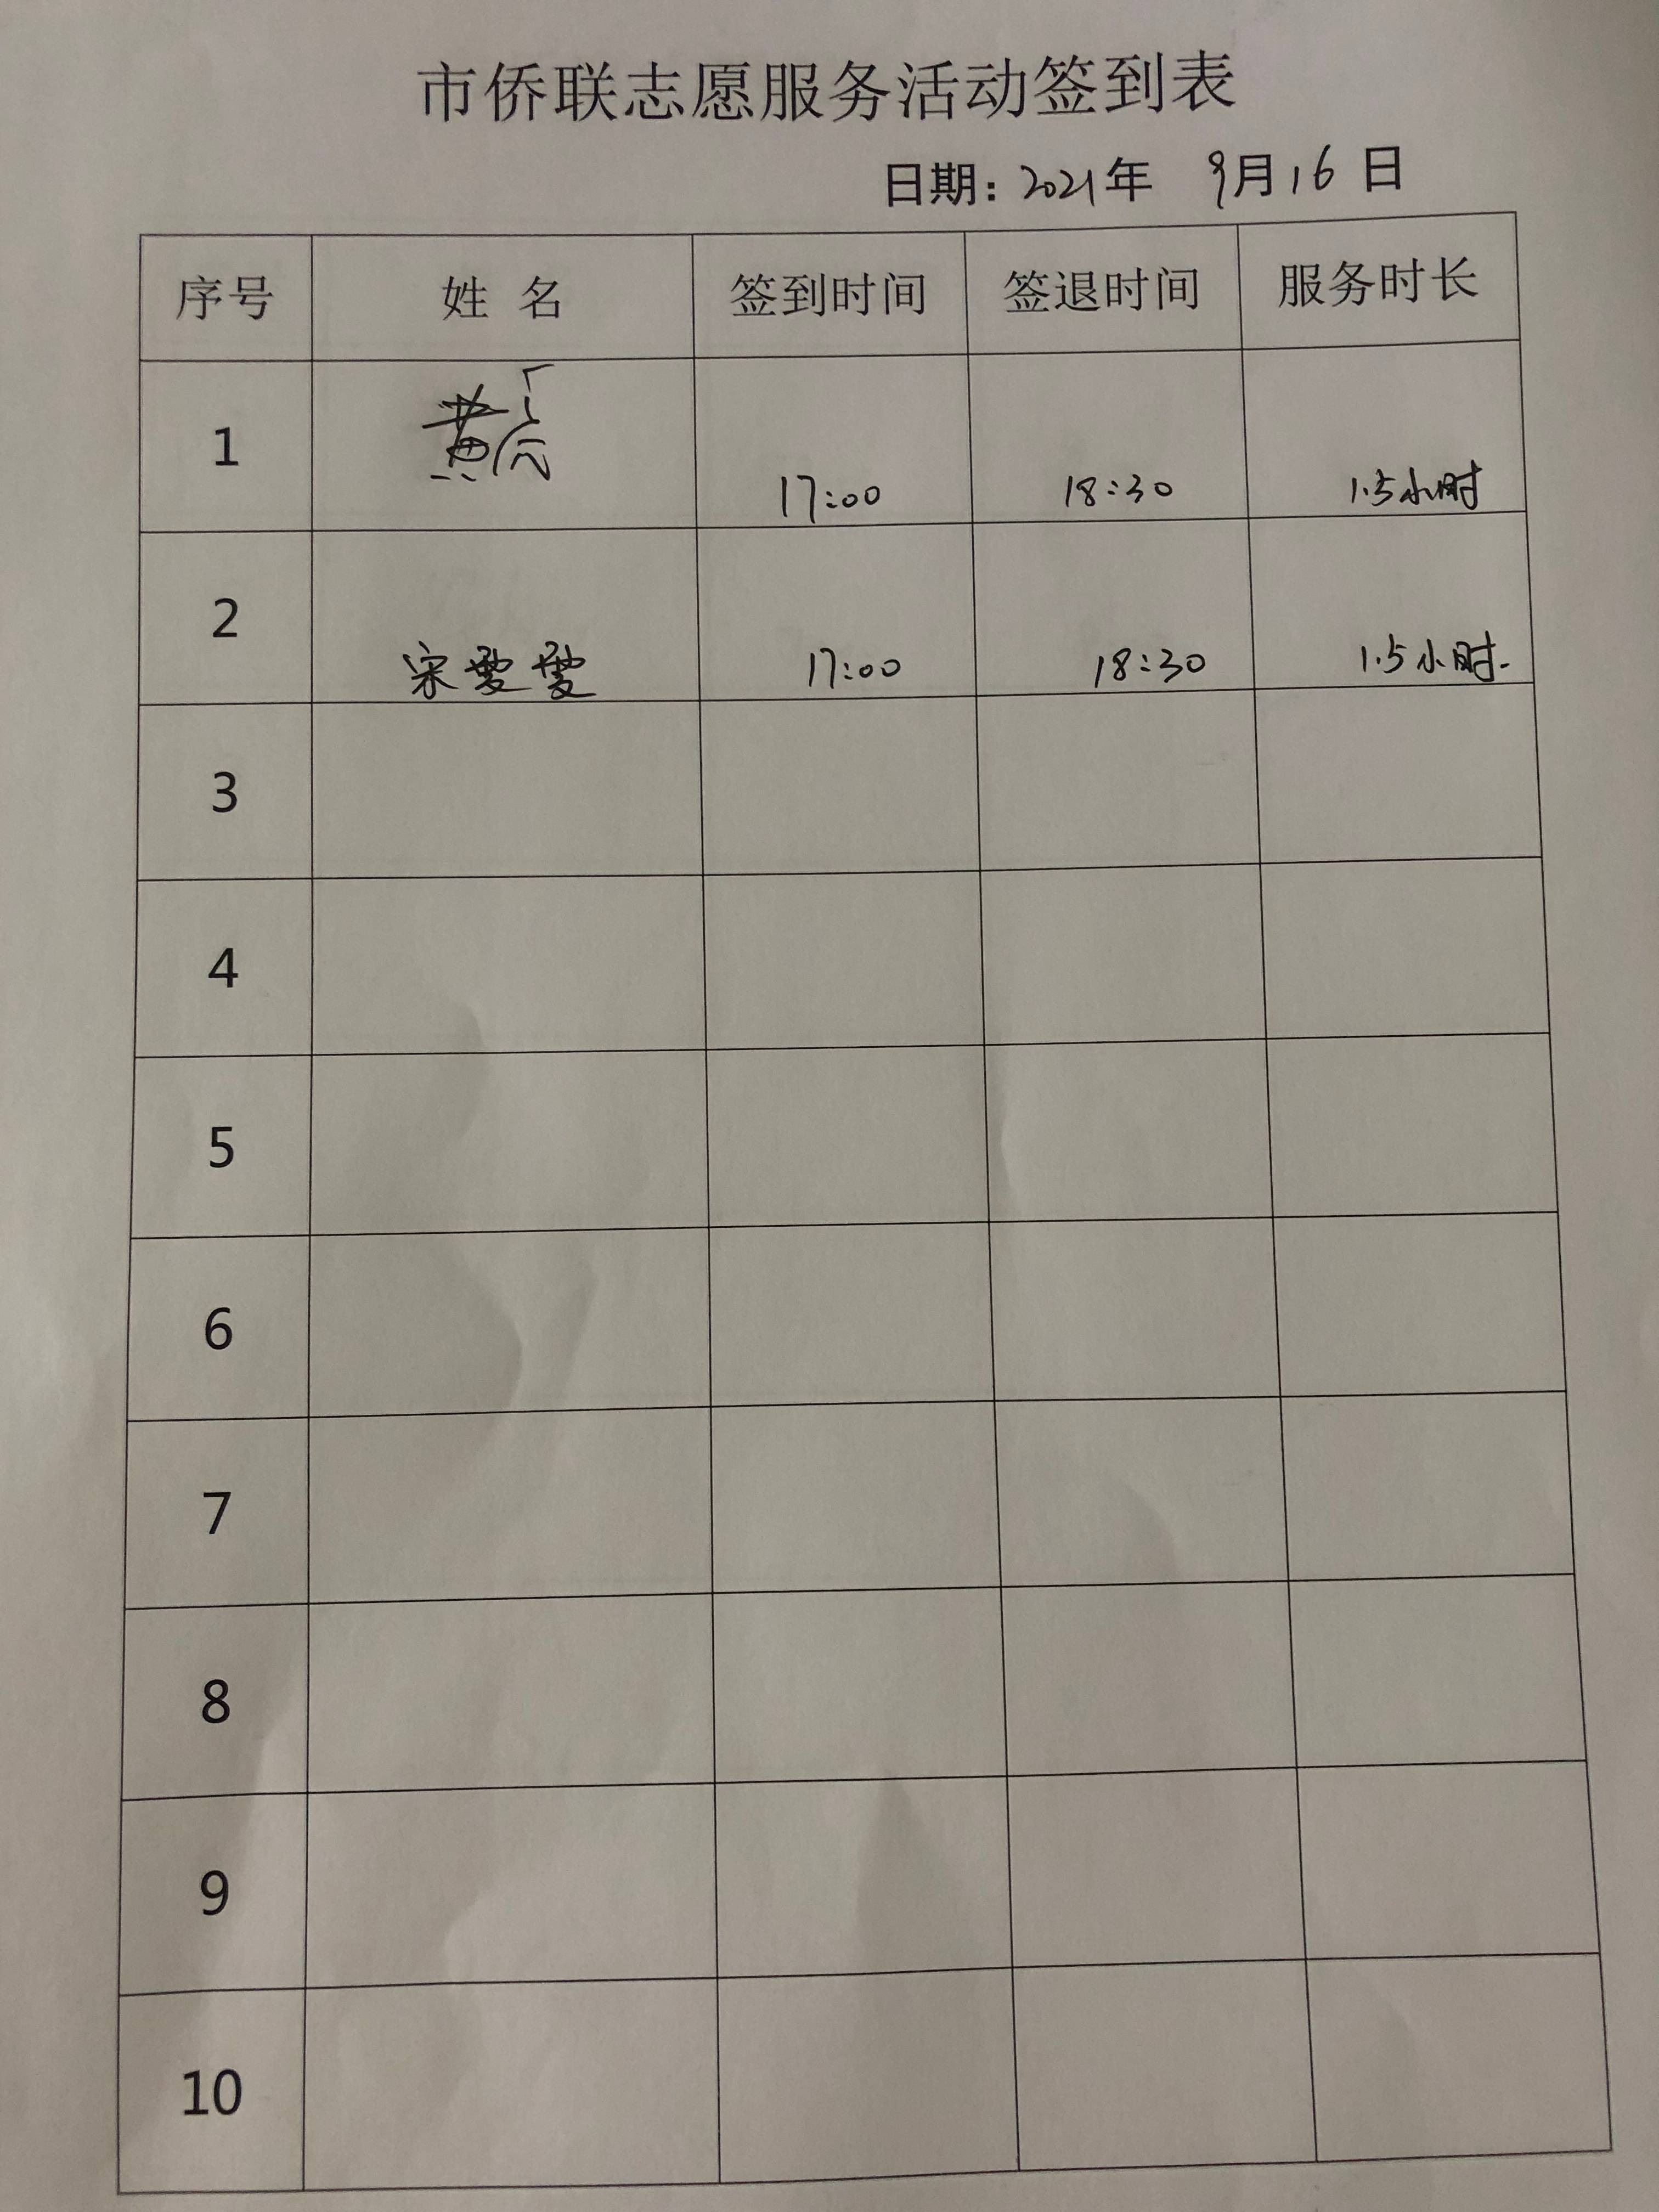 市侨联志愿服务活动签到表
日期：2021年 9月16日
序号 姓名 签到时间 签退时间 服务时长
1 黄 17:00 18:30 1.5小时
2 宋雯雯 17:00 18:30 1.5小时.
3
4
5
6
7
8
9
10